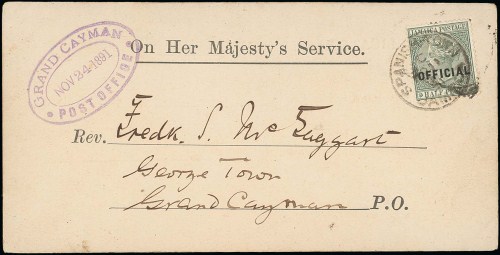 GRAND CAYMAN
NOV 24 1891
POST OFFICE
On Her Majesty's Service.
JAMAICA POSTAGE
OFFICIAL
HALF
SPANISH TOWN
Rev. Fredk. S. McTaggart
George Town
Grand Cayman P.O.